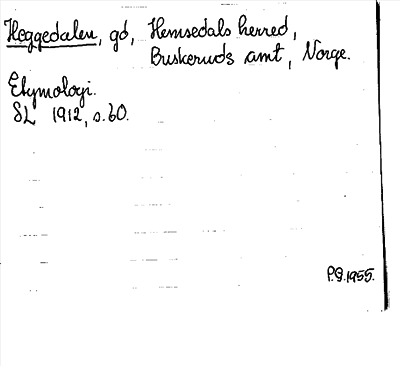 Heggedalen, gd, Hemsedals herred,
Buskeruds amt, Norge.
Etymologi.
SL 1912, s.60.
P.G.1955.